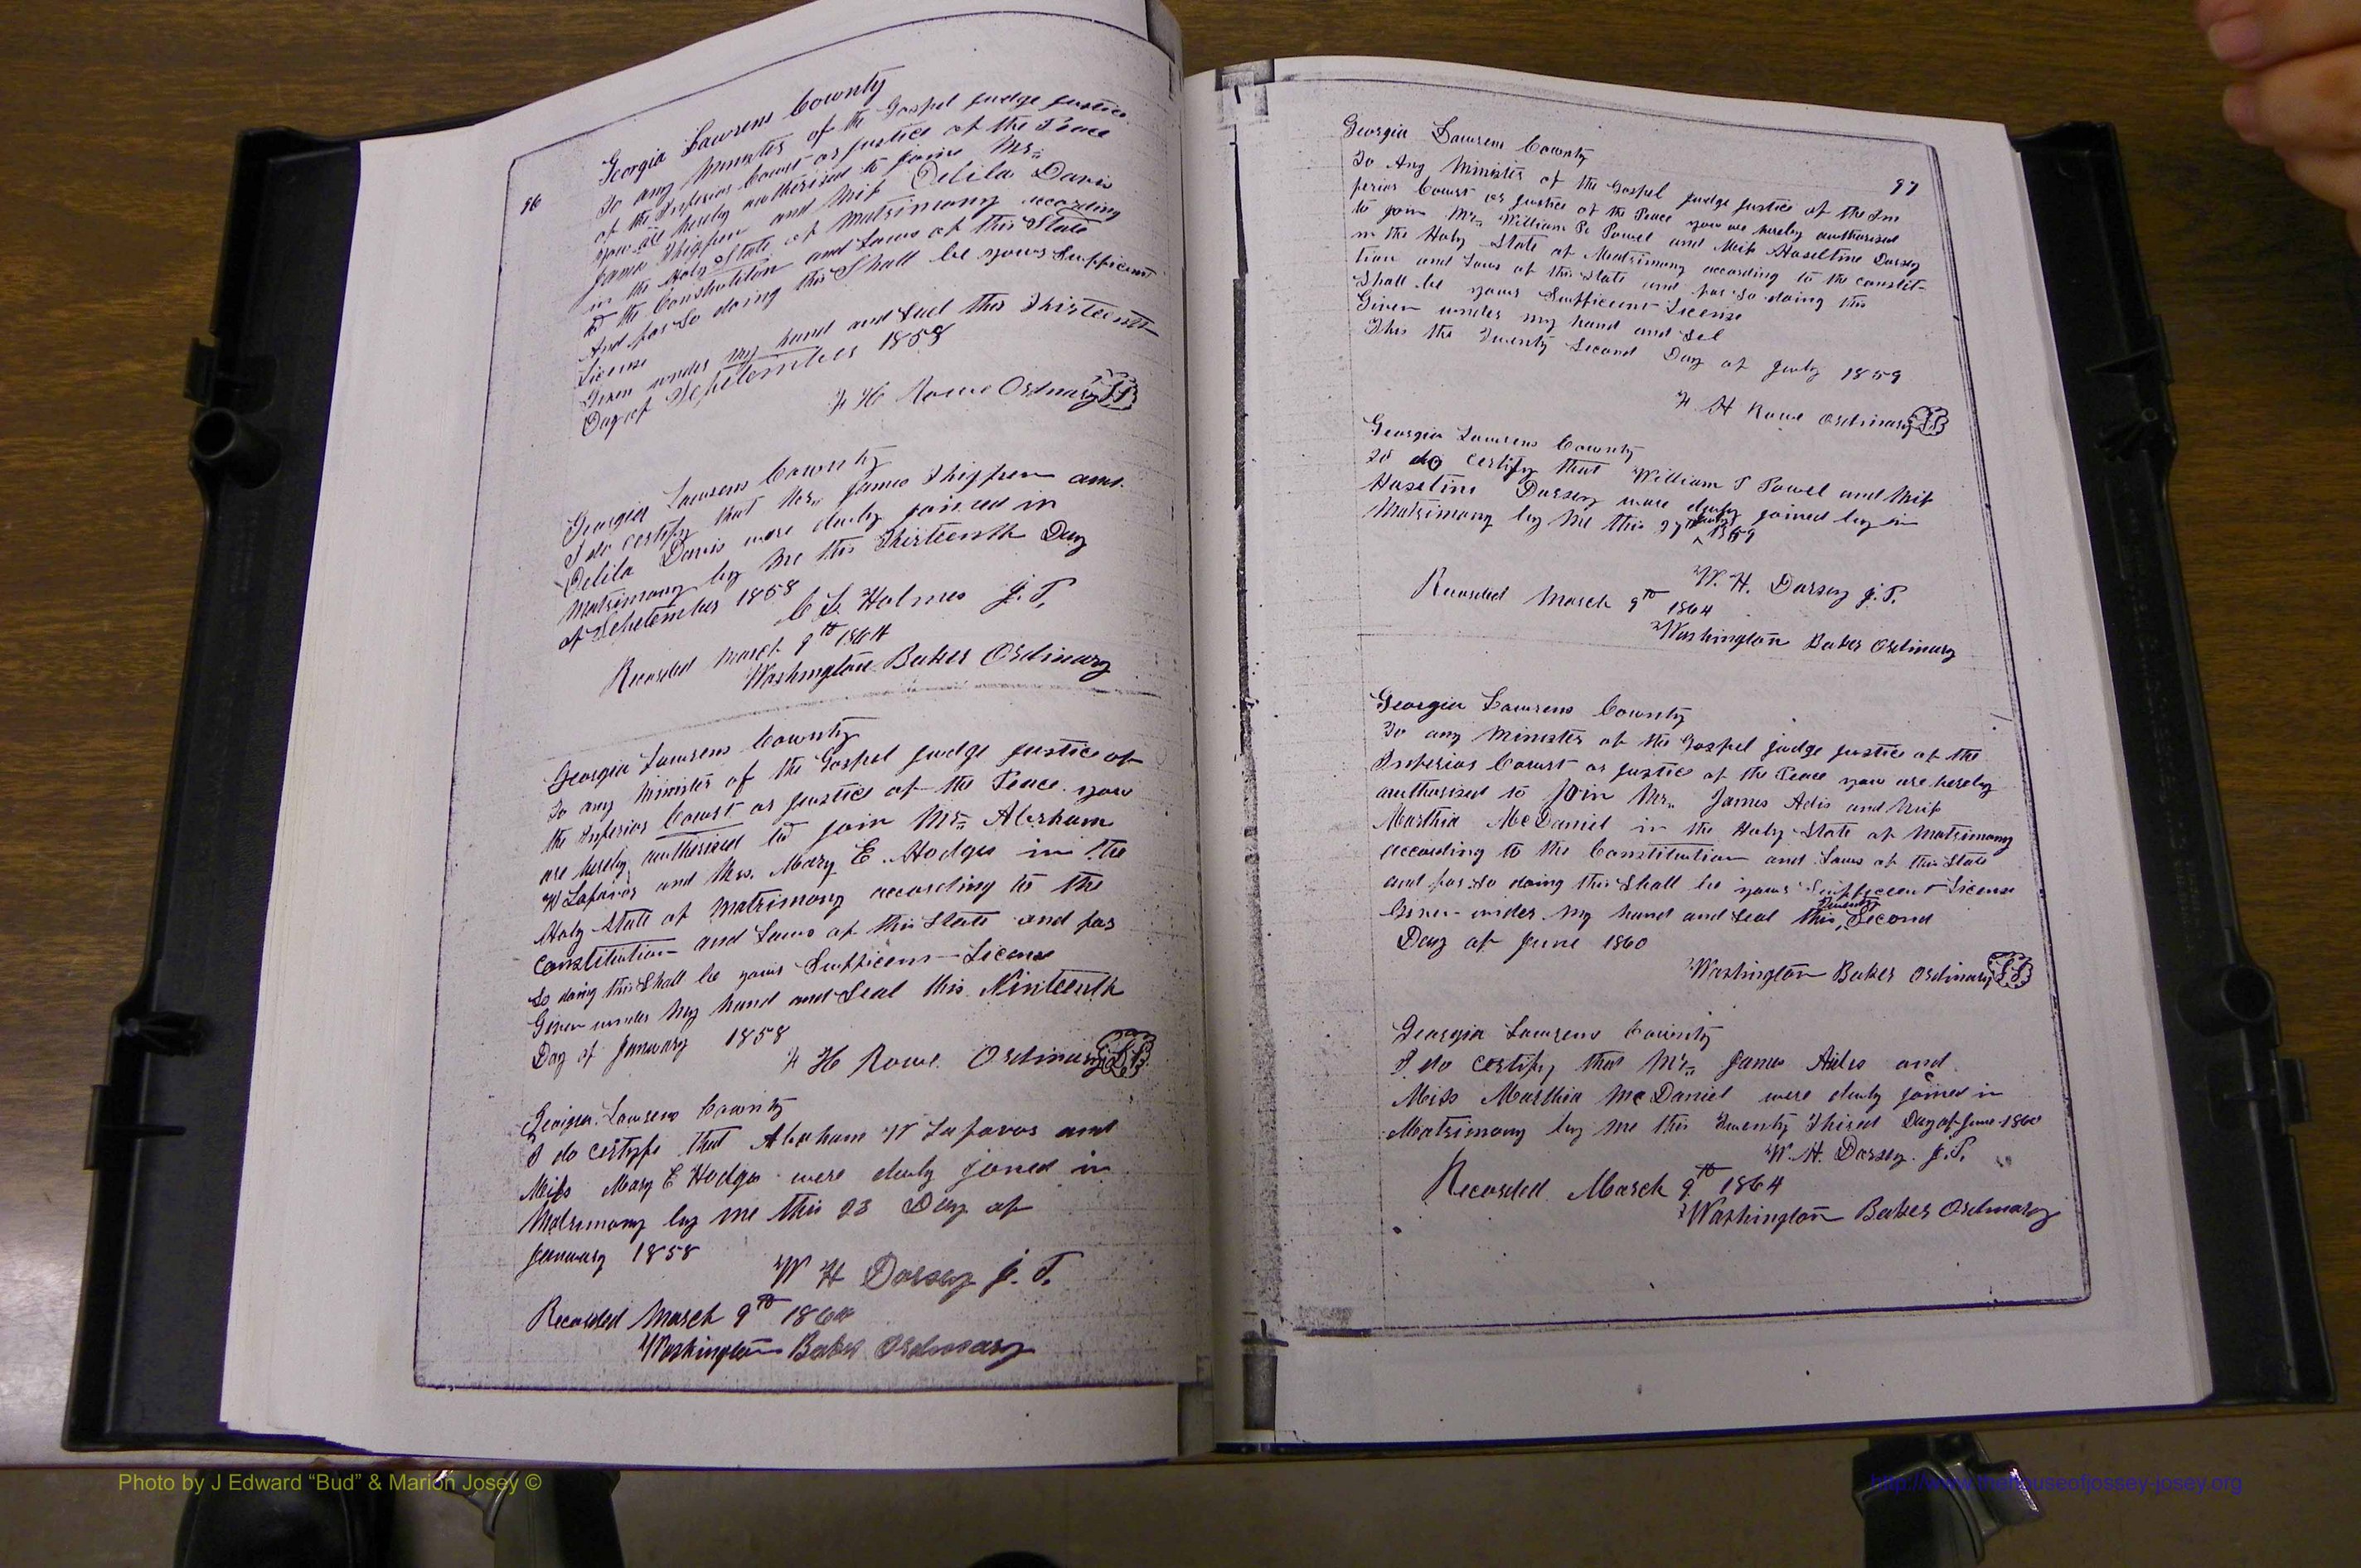 96
Georgia Laurens County
To any Minister of the Gospel Judge Justice
of the Inferior Court or Justice of the Peace
you are hereby authorised to joine Mr.
James Thigpen and Miss Delila Davis
in the Holy State of Matrimony according
to the Constitution and Laws of this State
And for So doing this Shall be yours Sufficient
License
Given under my hand and Seal this Thirteenth
Day of Sepetember 1858
H Rowe Ordinary LS
Georgia Laurens County
I do certify that Mr. James Thigpen and
Delila Davis were duly joined in
Matrimony by me this Thirteenth Day
of Sepetember 1858
Holmes J. P.
Recorded March 9th 1864
Washington Baker Ordinary
Georgia Laurens County
To any Minister of the Gospel Judge Justice of
the Inferior Court or Justice of the Peace you
are hereby authorised to join Mr. Abraham
W and Mrs. Mary E. Hodges in the
Holy State of Matrimony according to the
Constitution and Laws of this State and for
So doing this Shall be yours Sufficient License
Given under my hand and Seal this Ninteenth
Day of January 1858
H Rowe Ordinary LS
Georgia Laurens County
I do certyfe that Abraham W and
Miss Mary E Hodges were duly joned in
Matrimony by me this 23 Day of
January 1858
W H Dorsey J. P.
Recorded March 9th 1864
Washington Baker Ordinary
97
Georgia Laurens County
To Any Minister of the Gospel Judge Justice of the In
ferior Court or Justice of the Peace you are hereby authorised
to join Mr. William P. Powel and Miss Haseltine Dorsey
in the Holy State of Matrimony according to the constit-
tion and Laws of this State and for So doing this
Shall be yours Sufficient License
Given under my hand and Sel
This the Twenty Second Day of July 1859
H Rowe Ordinary LS
Georgia Laurens County
do certify that William P Powel and Miss
Haseltine Dorsey were duly joined by in
Matrimony by me this 27th July 1859
W. H. Dorsey J. P.
Recorded March 9th 1864
Washington Baker Ordinary
Georgia Laurens County
To any Minester of the Gospel judge justice of the
Inferior Court or justice of the Peace you are hereby
authorised to join Mr. James and Miss
Marthia McDaniel in the Holy State of Matrimony
according to the Constitution and Laws of this State
and for So doing this Shall be yours Sufficeent License
Given under my hand and Seal this Twenty Second
Day of June 1860
Washington Baker Ordinary LS
Georgia Laurens County
I do certify that Mr. James and
Miss Marthia McDaniel were duly joined in
Matrimony by me this Twenty Third Day of June 1860
W. H. Dorsey. J. P.
Recorded March 9th 1864
Washington Baker Ordinary
Photo by J Edward “Bud” & Marion Josey ©
http://www.thehouseofjossey-josey.org